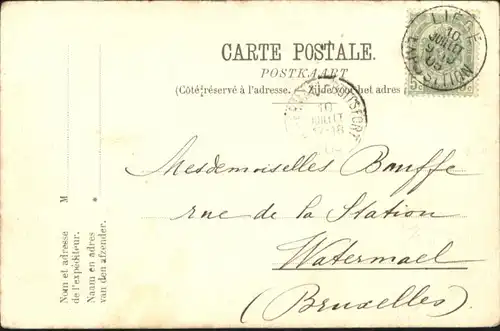 CARTE POSTALE.
POSTKAART
(Côté réservé à l'adresse. Zijde voor het adres
LIÉGE
10
JUILLET
EXPOSITION
10
JUILLET
Mesdemoiselles Bouffe
rue de la Station
Watermael
(Bruxelles)
M
Nom et adresse
de l'expéditeur.
Naam en adres
van den afzender.